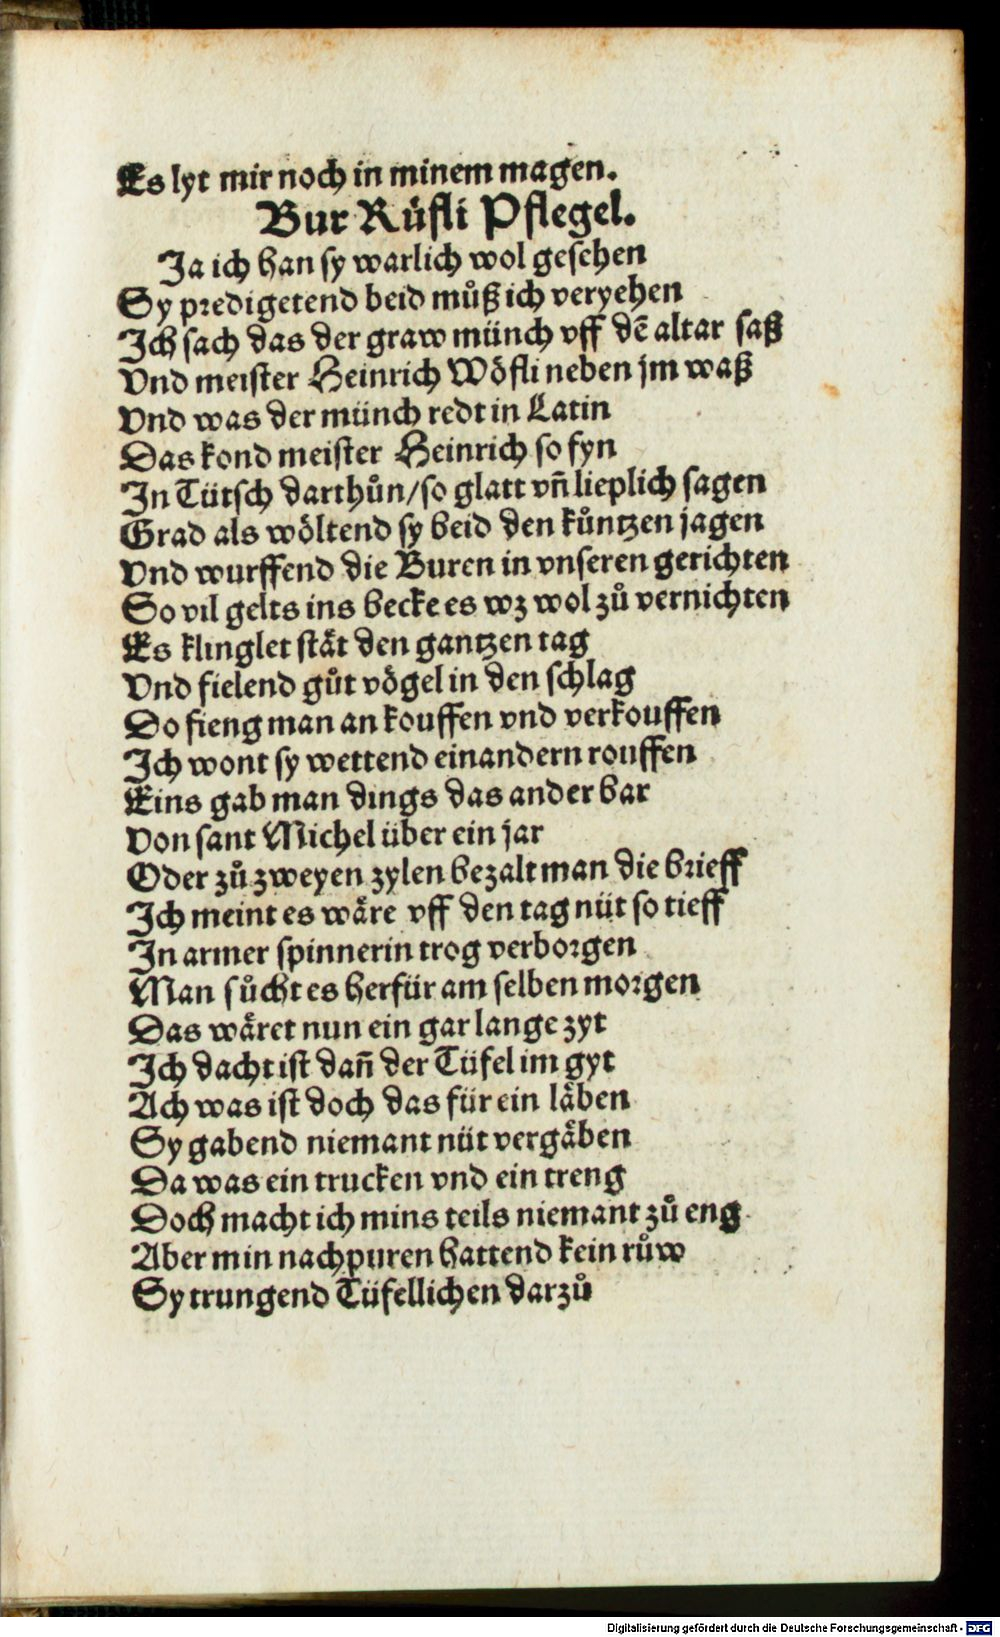 Es lyt mir noch in minem magen.
Bur Rüfli Pflegel.
Ja ich han sy warlich wol gesehen
Sy predigetend beid můß ich veryehen
Ich sach das der graw münch vff dē altar saß
Vnd meister Heinrich Wöfli neben jm waß
Vnd was der münch redt in Latin
Das kond meister Heinrich so fyn
In Tütsch darthůn/so glatt vn̄ lieplich sagen
Grad als wöltend sy beid den kůntzen jagen
Vnd wurffend die Buren in vnseren gerichten
So vil gelts ins becke es wz wol zů vernichten
Es klinglet stät den gantzen tag
Vnd fielend gůt vögel in den schlag
Do fieng man an kouffen vnd verkouffen
Ich wont sy wettend einandern rouffen
Eins gab man dings das ander bar
Von sant Michel über ein jar
Oder zů zweyen zylen bezalt man die brieff
Ich meint es wäre vff den tag nüt so tieff
In armer spinnerin trog verborgen
Man sůcht es herfür am selben morgen
Das wäret nun ein gar lange zyt
Ich dacht ist dan̄ der Tüfel im gyt
Ach was ist doch das für ein läben
Sy gabend niemant nüt vergäben
Da was ein trucken vnd ein treng
Doch macht ich mins teils niemant zů eng
Aber min nachpuren hattend kein růw
Sy trungend Tüfellichen darzů
Digitalisierung gefördert durch die Deutsche Forschungsgemeinschaft - DFG